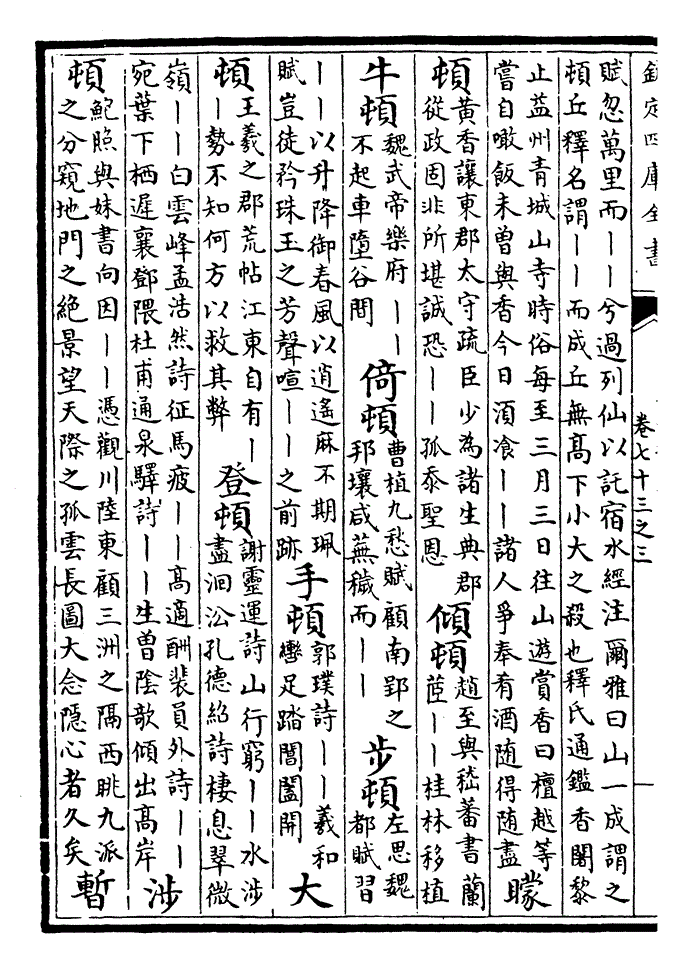 欽定四庫全書
卷七十三之三
賦忽萬里而丨丨兮過列仙以託宿水經注爾雅曰山一成謂之
頓丘釋名謂丨丨而成丘無高下小大之殺也釋氏通鑑香闍黎
止益州青城山寺時俗每至三月三日往山遊賞香曰檀越等
嘗自噉飯未曽與香今日湏飡丨丨諸人爭奉肴酒随得随盡
矇
頓
黄香讓東郡太守疏臣少為諸生典郡
從政固非所堪誠恐丨丨孤忝聖恩
傾頓
趙至與嵇蕃書蘭
茝丨丨桂林移植
牛頓
魏武帝樂府丨丨
不起車墮谷間
倚頓
曹植九愁賦顧南郢之
邦壤咸蕪穢而丨丨
步頓
左思魏
都賦習
丨丨以升降御春風以逍遙麻不期珮
賦豈徒矜珠玉之芳聲喧丨丨之前跡
手頓
郭璞詩丨丨羲和
轡足踏閶闔開
大
頓
王羲之郡荒帖江東自有丨
丨勢不知何方以救其弊
登頓
謝靈運詩山行窮丨丨水涉
盡洄沿孔德紹詩棲息翠微
嶺丨丨白雲峰孟浩然詩征馬疲丨丨高適酬裴員外詩丨丨
宛葉下栖遲襄鄧隈杜甫通泉驛詩丨丨生曽陰欹傾出高岸
涉
頓
鮑照與妹書向因丨丨憑觀川陸東顧三洲之隔西眺九派
之分窺地門之絶景望天際之孤雲長圖大念隠心者久矣
暫